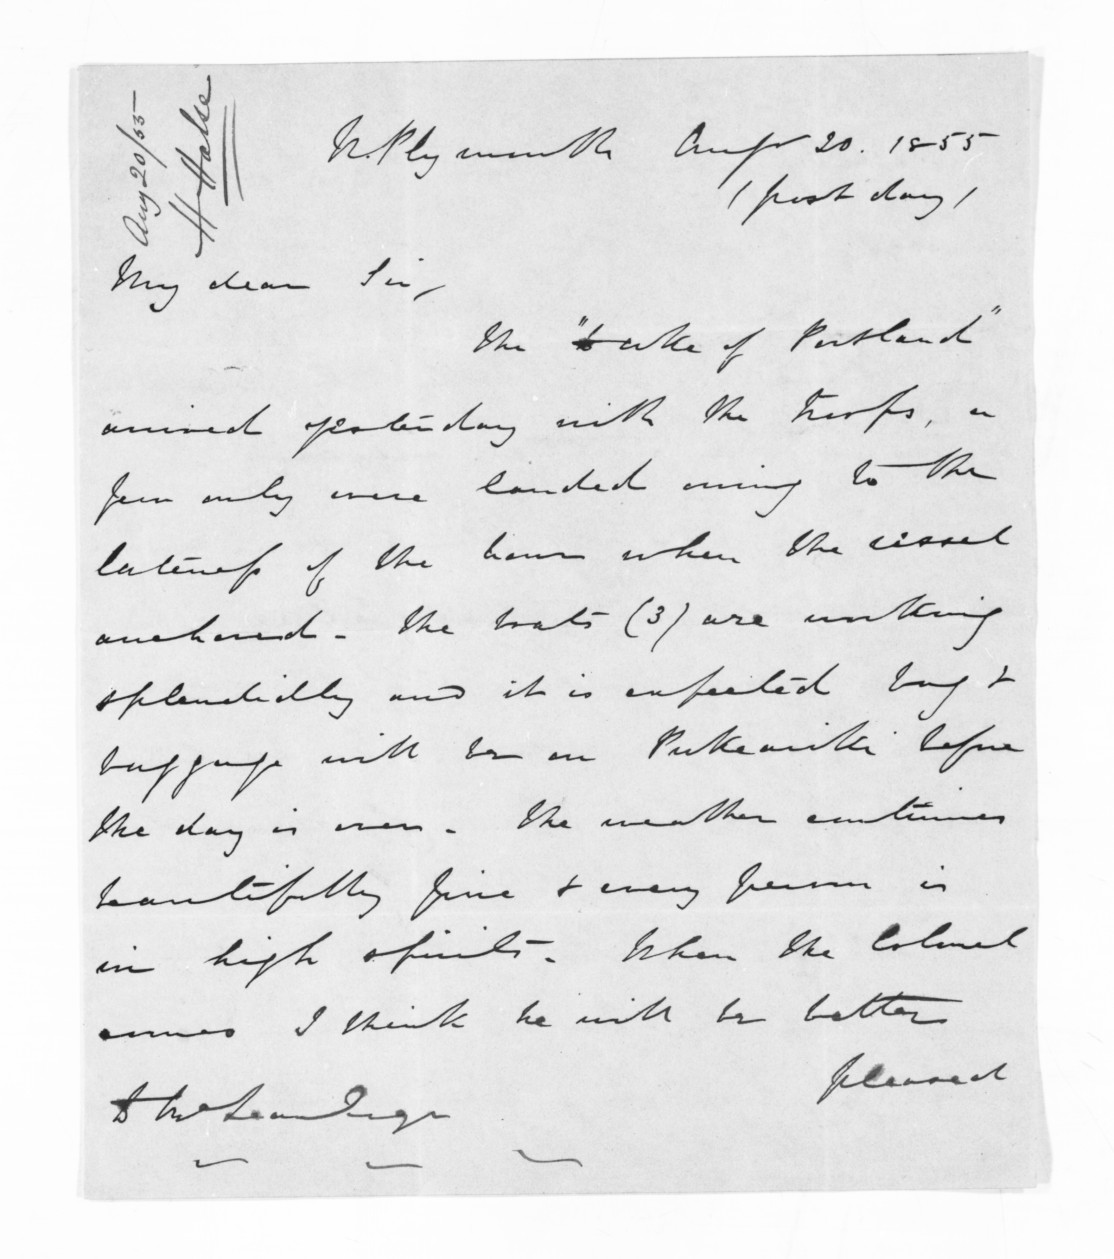 Aug 20/55
H Halse
N. Plymouth Augt 20. 1855
(post day)
My dear Sir,
The "Duke of Portland"
arrived yesterday with the Troops, a
few only were landed owing to the
lateness of the hour when the vessel
anchored - The boats (3) are working
splendidly and it is expected bag &
baggage will be on Pukeariki before
the day is over - The weather continues
beautifully fine & every person is
in high spirits - When the Colonel
comes I think he will be better
pleased
D McLean Esqr